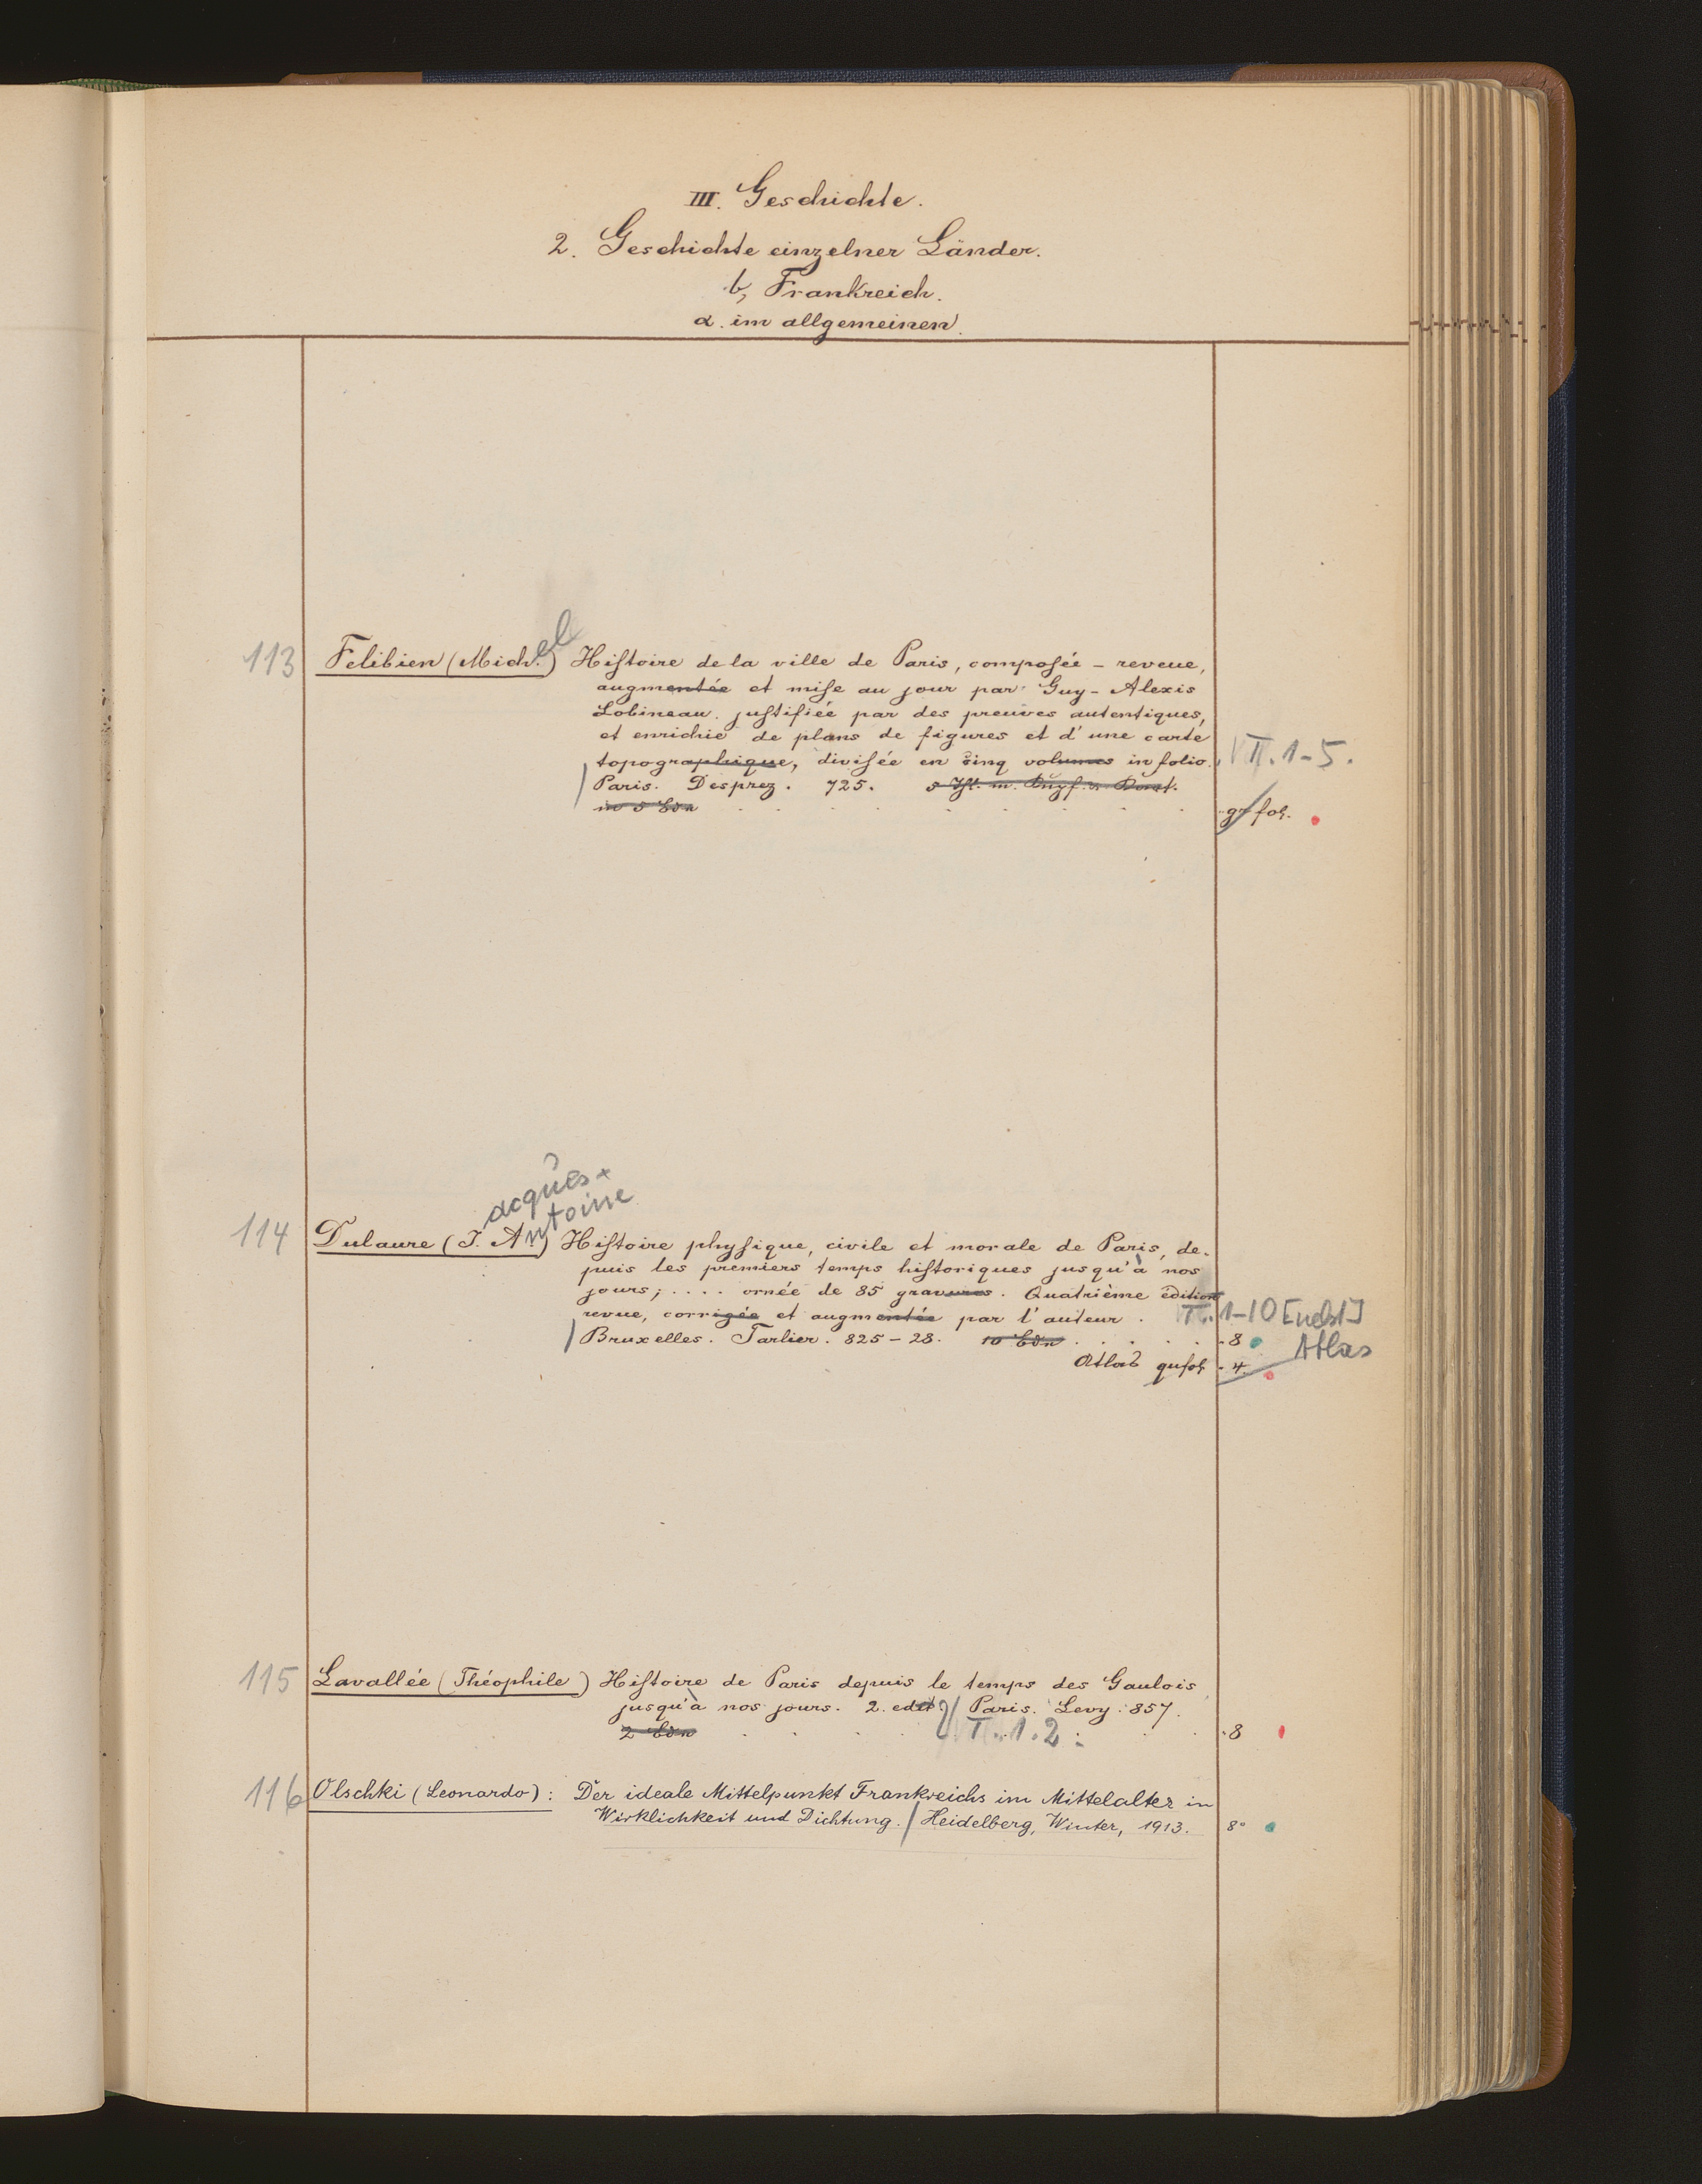 III. Geschichte.
2. Geschichte einzelner Länder.
b, Frankreich.
α. im allgemeinen.
113 Felibien (Mich.el) Hiſtoire de la ville de Paris, compoſée – reveue,
augmentée et miſe au jour par Guy-Alexis
Lobineau. juſtifiée par des preuves autentiques,
et enrichie de plans de figures et d'une carte
topographique, diviſée en cinq volumes in folio.
Paris. Desprez. 725.
T. 1-5.
in 5 Bdn
fol.
acques
Antoine
114 Dulaure (J. Ant.) Hiſtoire phyſique, civile et morale de Paris, de-
puis les premiers temps hiſtoriques jusqu'à nos
jours; .... ornée de 85 gravures. Quatrième édition
revue, corrigée et augmentée par l'auteur. T. 1-10 [nebst]
Bruxelles. Tarlier. 825-28. 10 Bdn 8 Atlas
Atlas qufol. 4.
115 Lavallée (Théophile) Hiſtoire de Paris depuis le temps des Gaulois
jusqu'à nos jours. 2. edit. / Paris. Levy. 857.
2 Bdn T. 1.2. 8
116 Olschki (Leonardo): Der ideale Mittelpunkt Frankreichs im Mittelalter in
Wirklichkeit und Dichtung. / Heidelberg, Winter, 1913. 8°